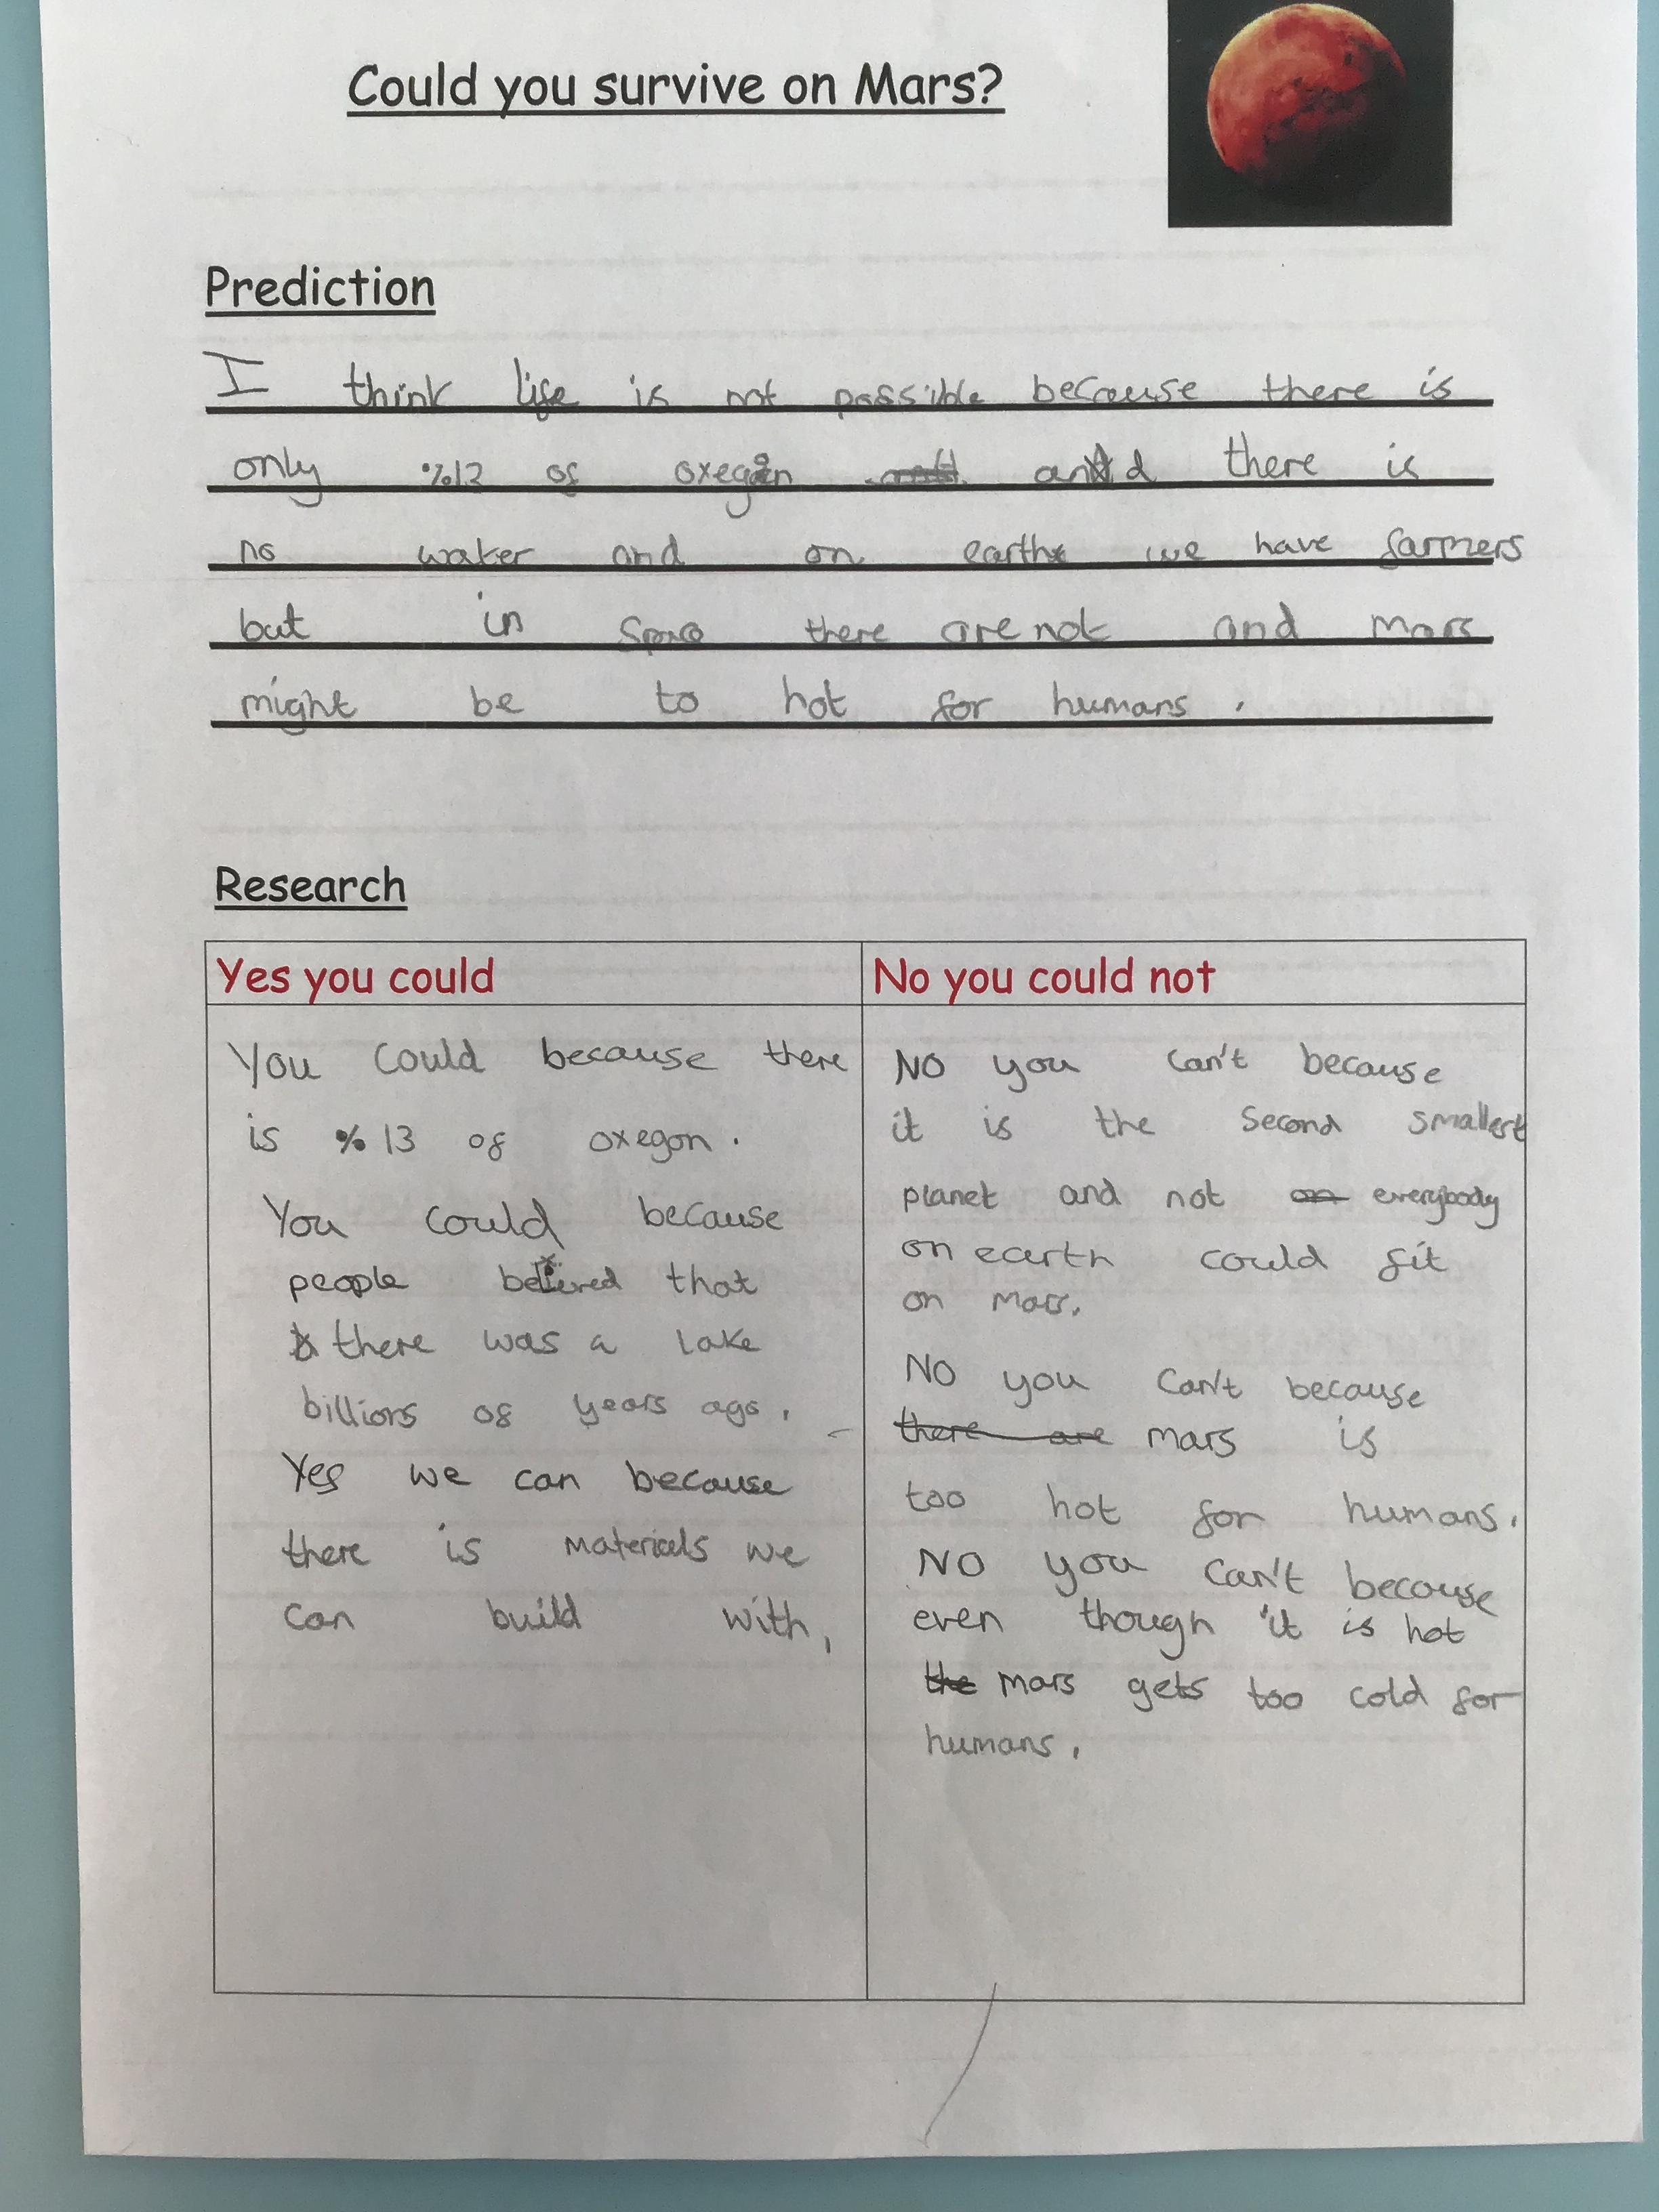 Could you survive on Mars?
Prediction
I think life is not possible because there is
only %12 of oxegen and there is
no water and on earth we have farmers
but in space there are not and mars
might be to hot for humans.
Research
Yes you could
You could because there
is %13 of oxegon.
You could because
people belived that
there was a lake
billions of years ago.
Yes we can because
there is materials we
can build with,
No you could not
No you can't because
it is the second smallest
planet and not everybody
on earth could fit
on mars.
No you can't because
there are mars is
too hot for humans.
No you can't because
even though it is hot
the mars gets too cold for
humans.